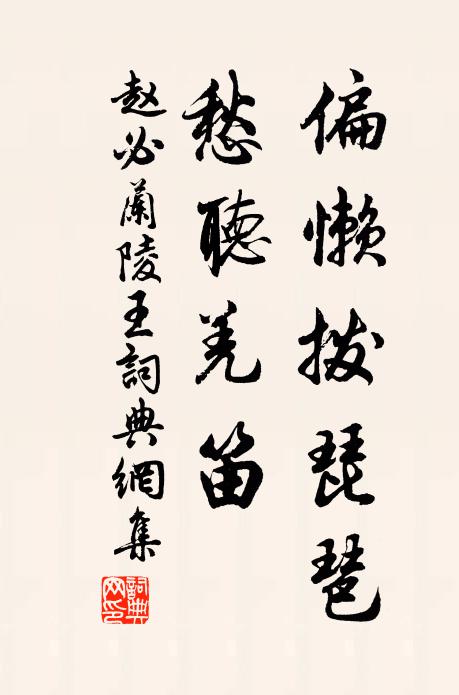 偏懒拨琵琶
愁聽羌笛
赵必蘭陵王詞典網集
詞典网印